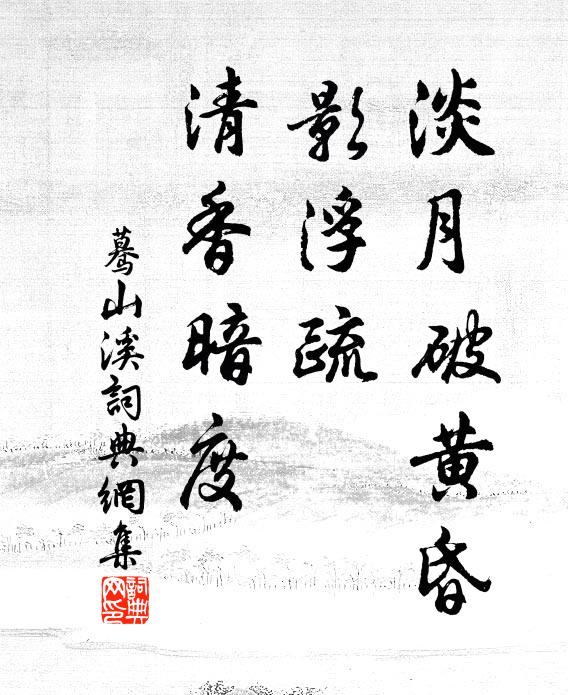 淡月破黄昏
影浮疏
清香暗度
驀山溪詞典網集
詞典网印